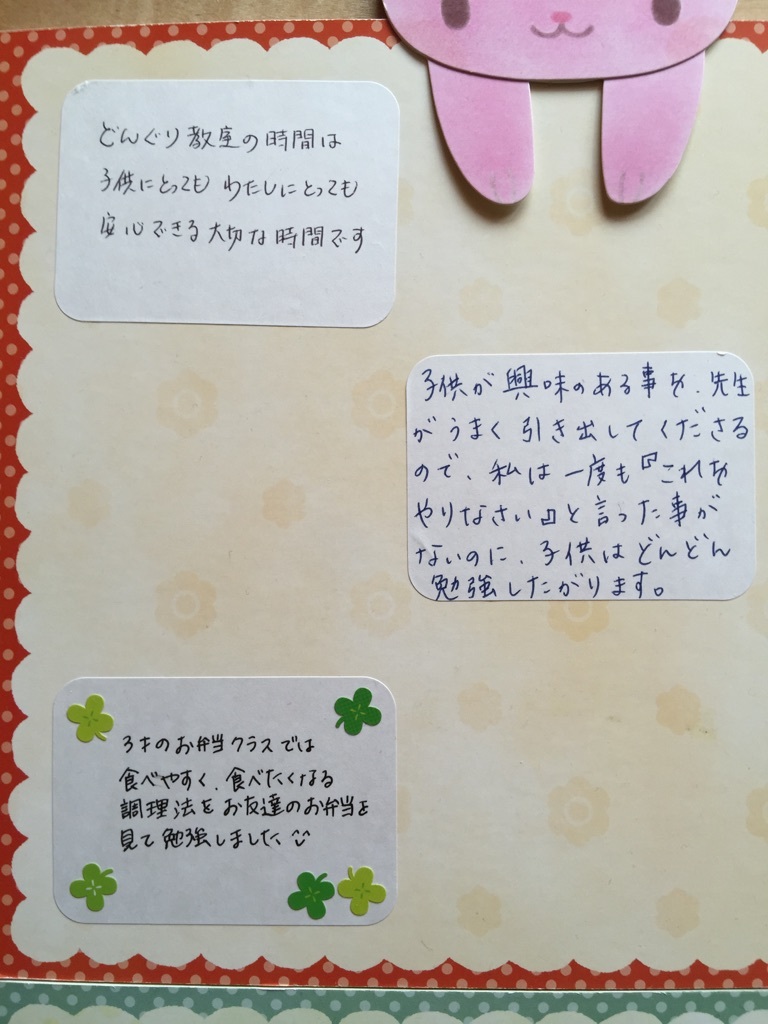 どんぐり教室の時間は
子供にとっても わたしにとっても
安心できる大切な時間です
子供が興味のある事を、先生
がうまく引き出してくださる
ので、私は一度も『これを
やりなさい』と言った事が
ないのに、子供はどんどん
勉強したがります。
3才のお弁当クラスでは
食べやすく、食べたくなる
調理法をお友達のお弁当を
見て勉強しました